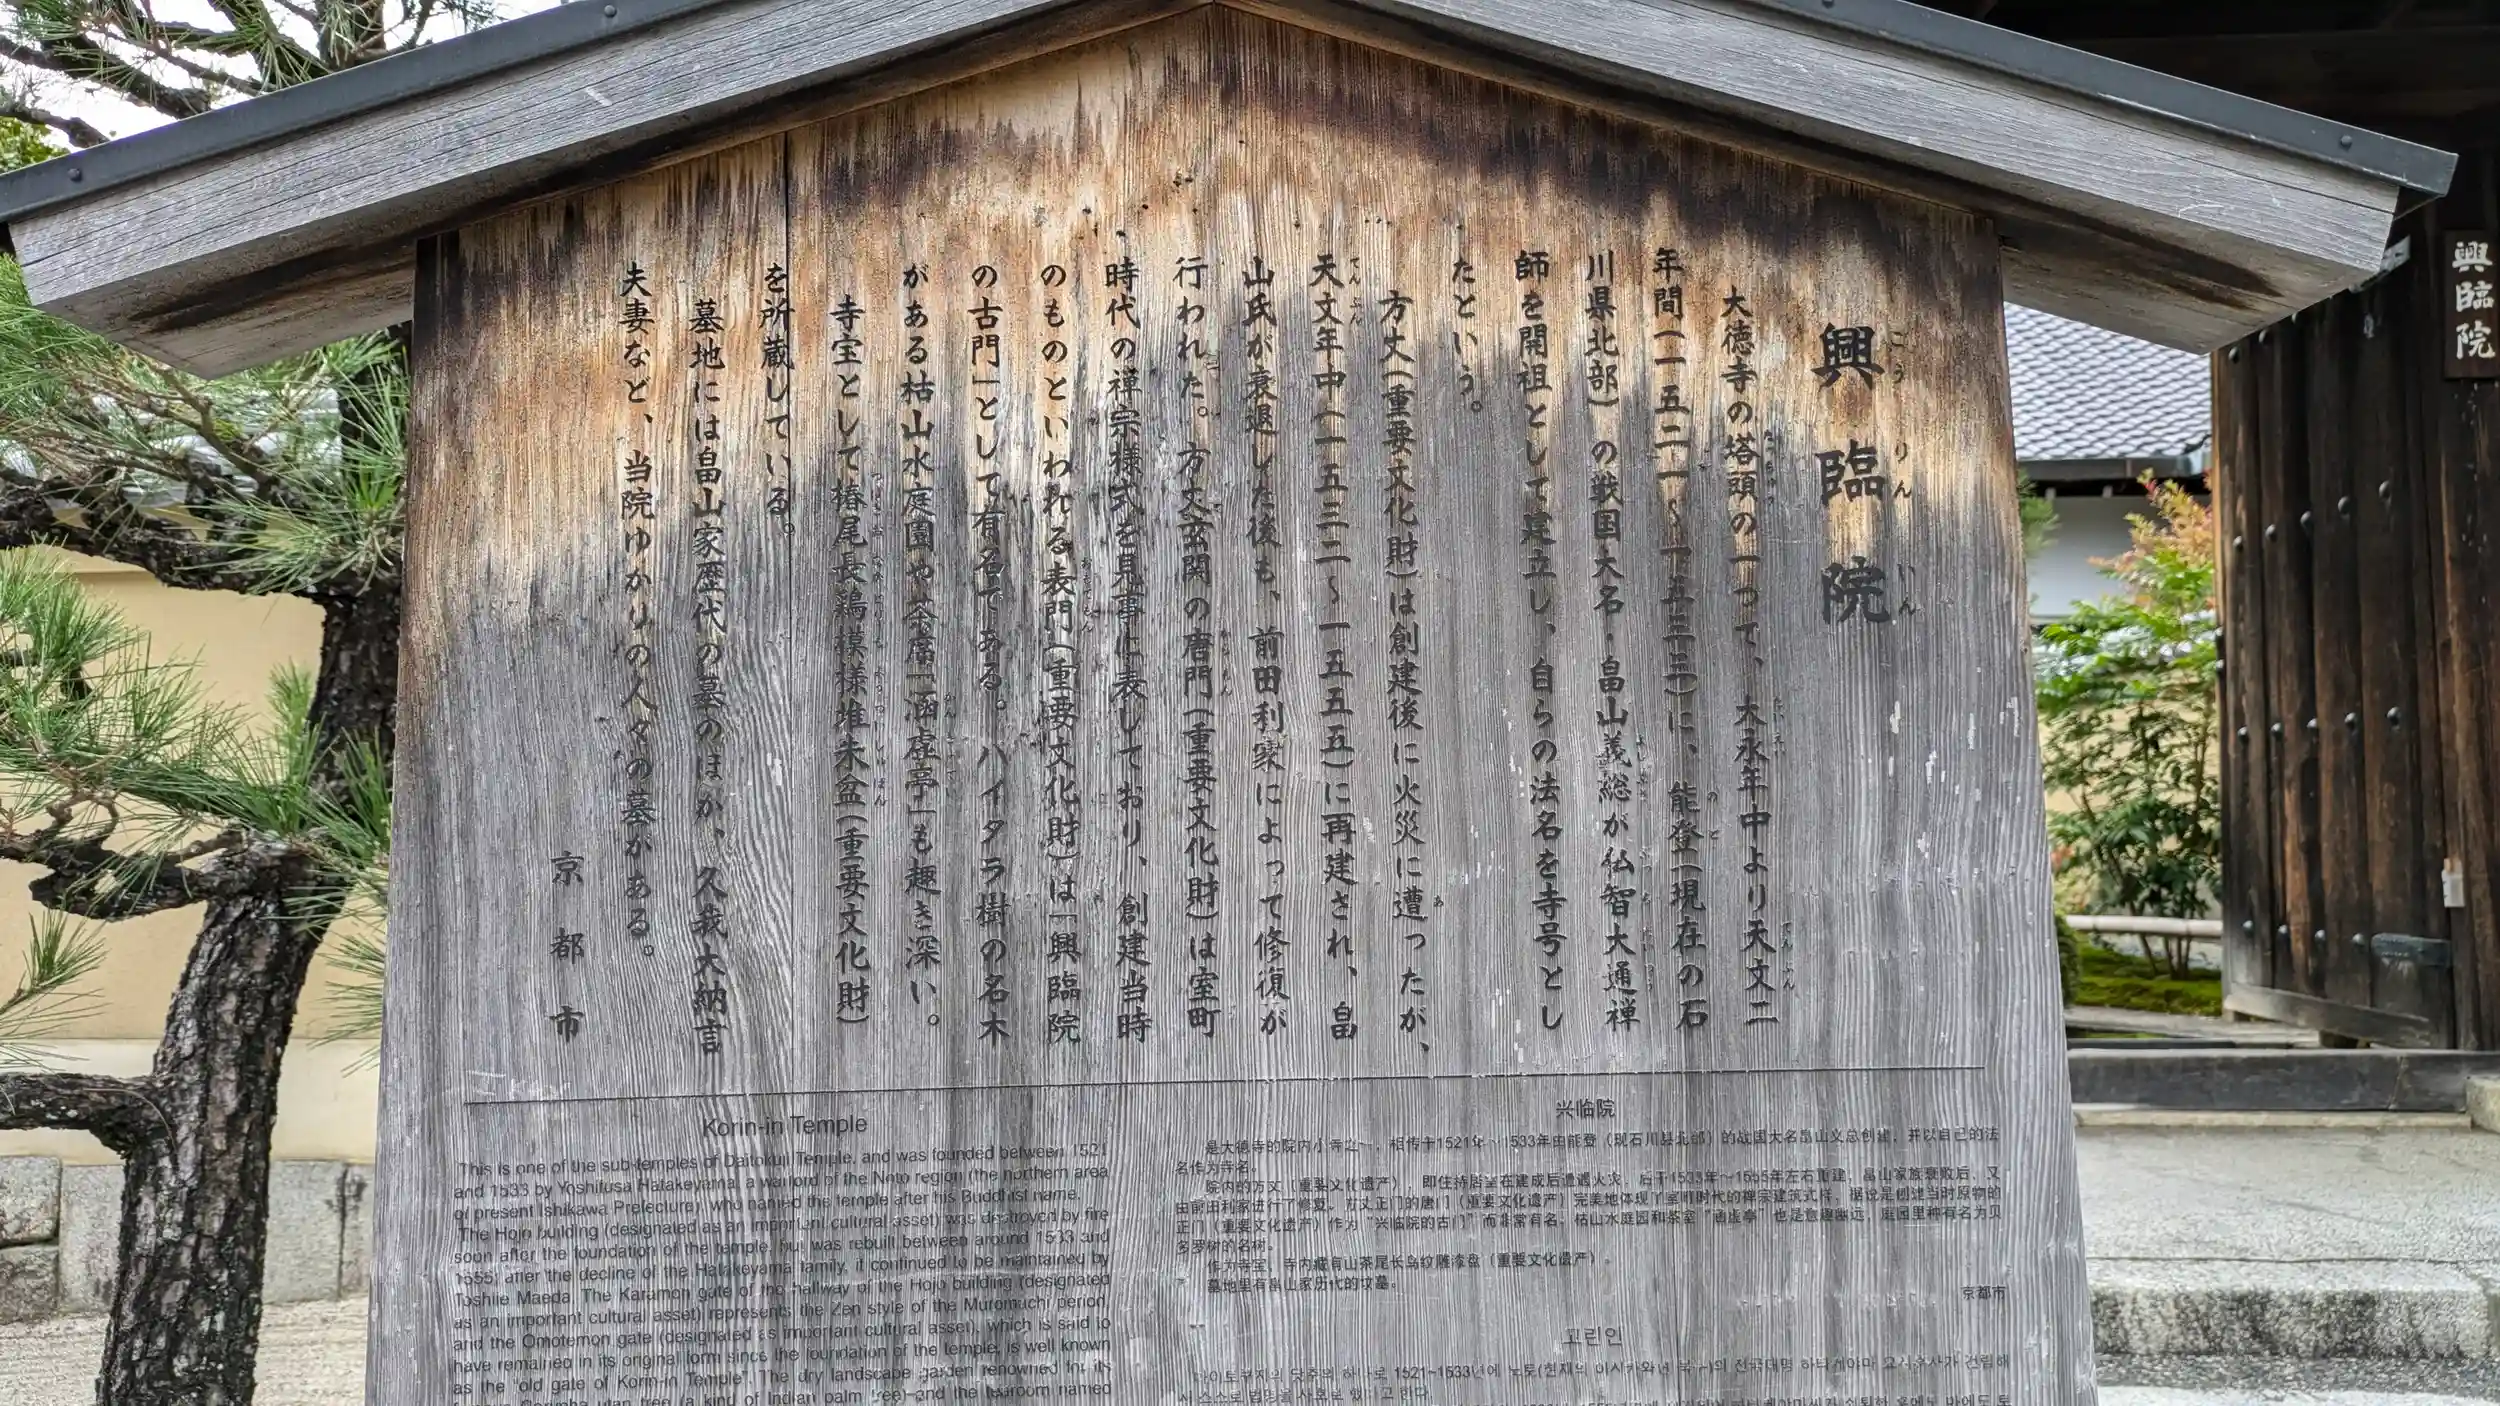 興臨院
大徳寺の塔頭の一つで、大永年中より天文二
年間(一五二一〜一五三三)に、能登(現在の石
川県北部)の戦国大名・畠山義総が仏智大通禅
師を開祖として建立し、自らの法名を寺号とし
たという。
方丈(重要文化財)は創建後に火災に遭ったが、
天文年中(一五三二〜一五五五)に再建され、畠
山氏が衰退した後も、前田利家によって修復が
行われた。方丈玄関の唐門(重要文化財)は室町
時代の禅宗様式を見事に表しており、創建当時
のものといわれる表門(重要文化財)は「興臨院
の古門」として有名である。バイタラ樹の名木
がある枯山水庭園や茶席「涵虚亭」も趣き深い。
寺宝として椿尾長鶏模様堆朱盆(重要文化財)
を所蔵している。
墓地には畠山家歴代の墓のほか、久我大納言
夫妻など、当院ゆかりの人々の墓がある。
京都市
Korin-in Temple
This is one of the sub-temples of Daitokuji Temple, and was founded between 1521
and 1533 by Yoshifusa Hatakeyama, a warlord of the Noto region (the northern area
of present Ishikawa Prefecture), who named the temple after his Buddhist name.
The Hojo building (designated as an important cultural asset) was destroyed by fire
soon after the foundation of the temple, but was rebuilt between around 1533 and
1555; after the decline of the Hatakeyama family, it continued to be maintained by
Toshiie Maeda. The Karamon gate of the hallway of the Hojo building (designated
as an important cultural asset) represents the Zen style of the Muromachi period,
and the Omotemon gate (designated as important cultural asset), which is said to
have remained in its original form since the foundation of the temple, is well known
as the "old gate of Korin-in Temple". The dry landscape garden renowned for its
tree (a kind of Indian palm tree) and the tearoom named
兴临院
是大德寺的院内小寺之一，相传于1521年～1533年由能登（现石川县北部）的战国大名畠山义总创建，并以自己的法
名作为寺名。
院内的方丈（重要文化遗产），即住持居室在建成后遭遇火灾，后于1533年～1555年左右重建，畠山家族衰败后，又
由前田利家进行了修复。方丈正门的唐门（重要文化遗产）完美地体现了室町时代的禅宗建筑式样，据说是创建当时原物的
正门（重要文化遗产）作为“兴临院的古门”而非常有名。枯山水庭园和茶室“涵虚亭”也是意趣幽远，庭园里种有名为贝
多罗树的名树。
作为寺宝，寺内藏有山茶尾长鸟纹雕漆盘（重要文化遗产）。
墓地里有畠山家历代的坟墓。
京都市
고린인
다이토쿠지의 탑두의 하나로 1521~1533년에 노토(현재의 이시카와현 북부)의 전국대명 하타케야마 요시후사가 건립해
스스로 법명을 사호로 했다고 한다.
興臨院